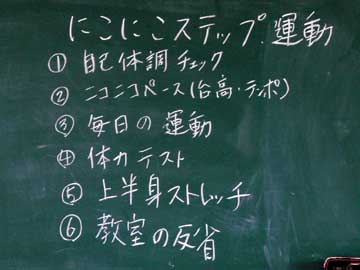 にこにこステップ運動
① 自己体調チェック
② ニコニコペース(台高・テンポ)
③ 毎日の運動
④ 体力テスト
⑤ 上半身ストレッチ
⑥ 教室の反省